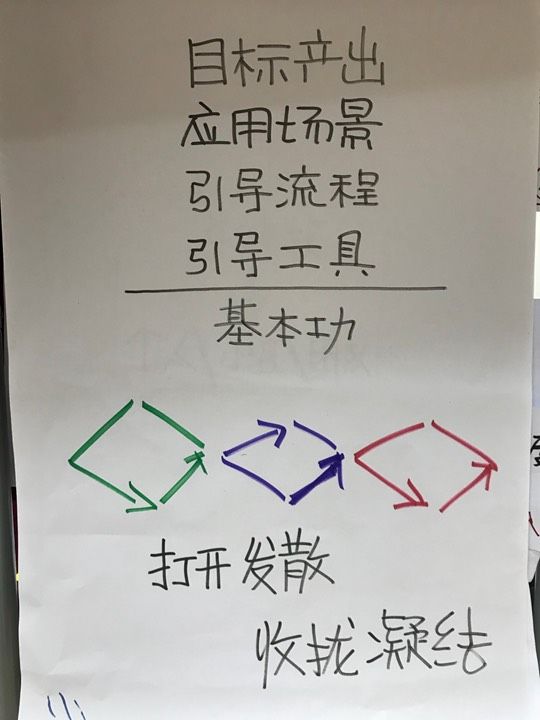 目标产出
应用场景
引导流程
引导工具
基本功
打开发散
收拢凝结